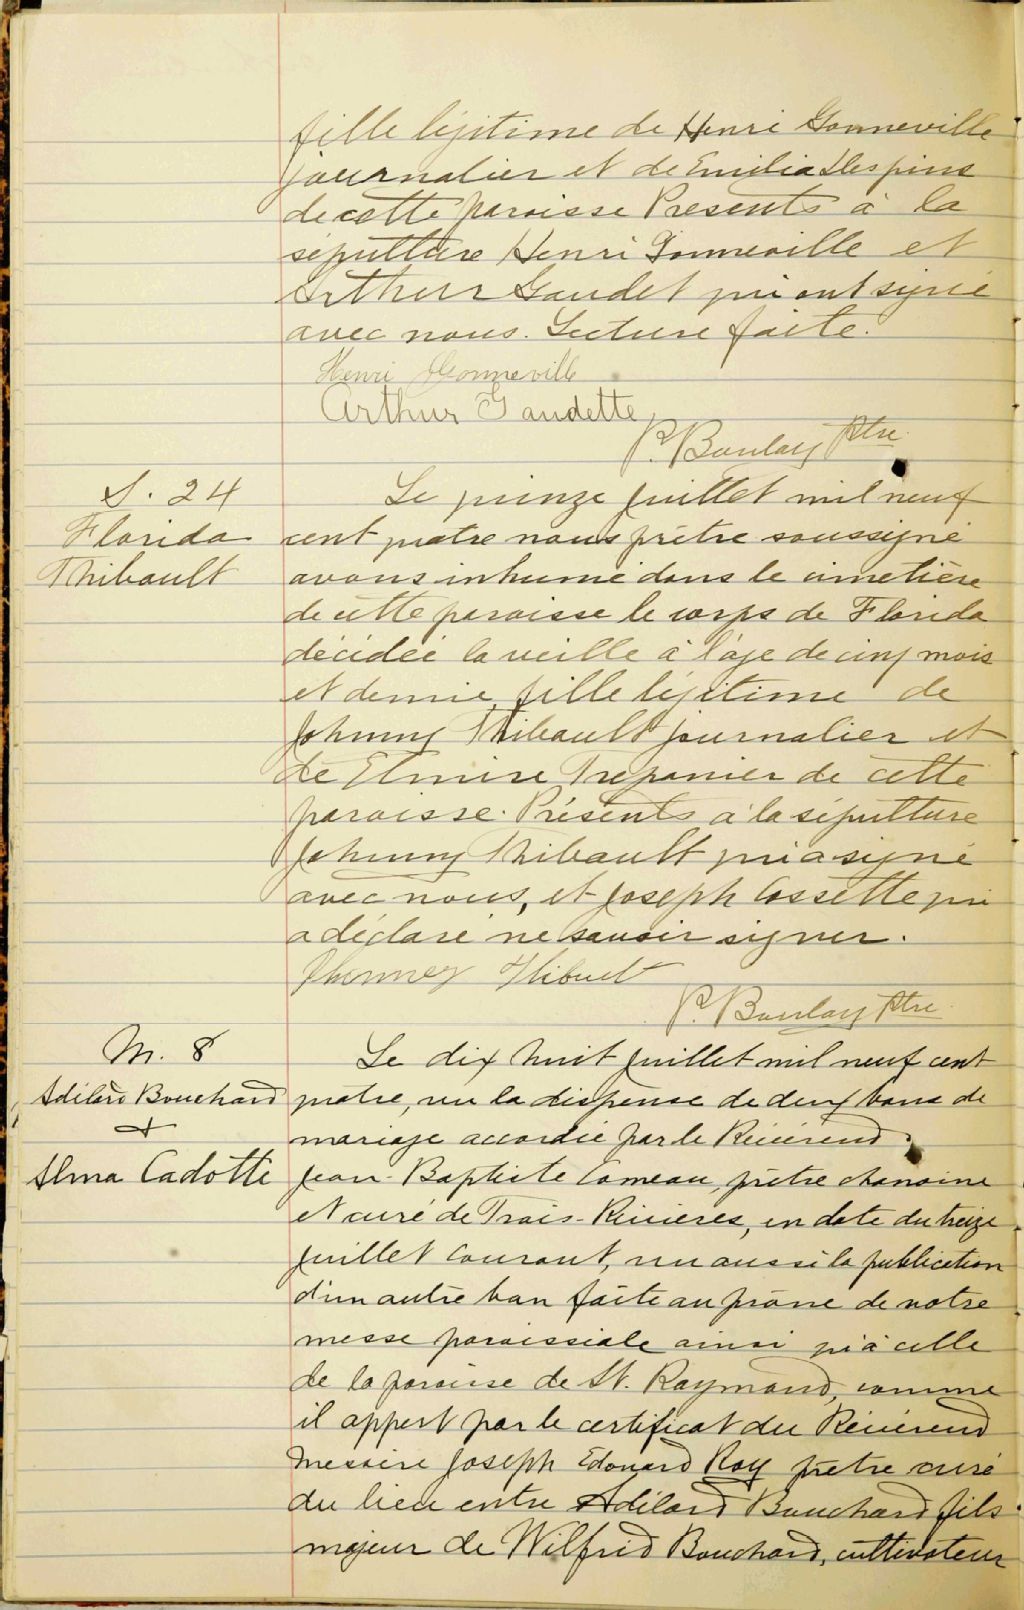 fille légitime de Henri Gonneville
journalier et de Emilia Despins
de cette paroisse Presents à la
sépulture Henri Gonneville et
Arthur Gaudet qui ont signé
avec nous. Lecture faite.
Henri Gonneville
Arthur Gaudette
P. Boulay Ptre
S. 24
Florida
Thibault
Le quinze juillet mil neuf
cent quatre nous prêtre soussigné
avons inhumé dans le cimetière
de cette paroisse le corps de Florida
décidée la veille à l'âge de cinq mois
et demie, fille légitime de
Johnny Thibault journalier et
de Elmire Trepanier de cette
paroisse. Présents à la sépulture
Johnny Thibault qui a signé
avec nous, et Joseph Cossette qui
a déclaré ne savoir signer.
Jhonney Thibuelt
P. Boulay Ptre
M. 8
Adélard Bouchard
+
Alma Cadotte
Le dix huit juillet mil neuf cent
quatre, vu la dispense de deux bans de
mariage accordée par le Révérend
Jean-Baptiste Comeau, prêtre chanoine
et curé de Trois-Rivières, en date du treize
juillet courant, vu aussi la publication
d'un autre ban faite au prône de notre
messe paroissiale ainsi qu'à celle
de la paroisse de St. Raymond, comme
il appert par le certificat du Révérend
Messire Joseph Edouard Roy prêtre curé
du lieu entre Adélard Bouchard fils
majeur de Wilfrid Bouchard, cultivateur